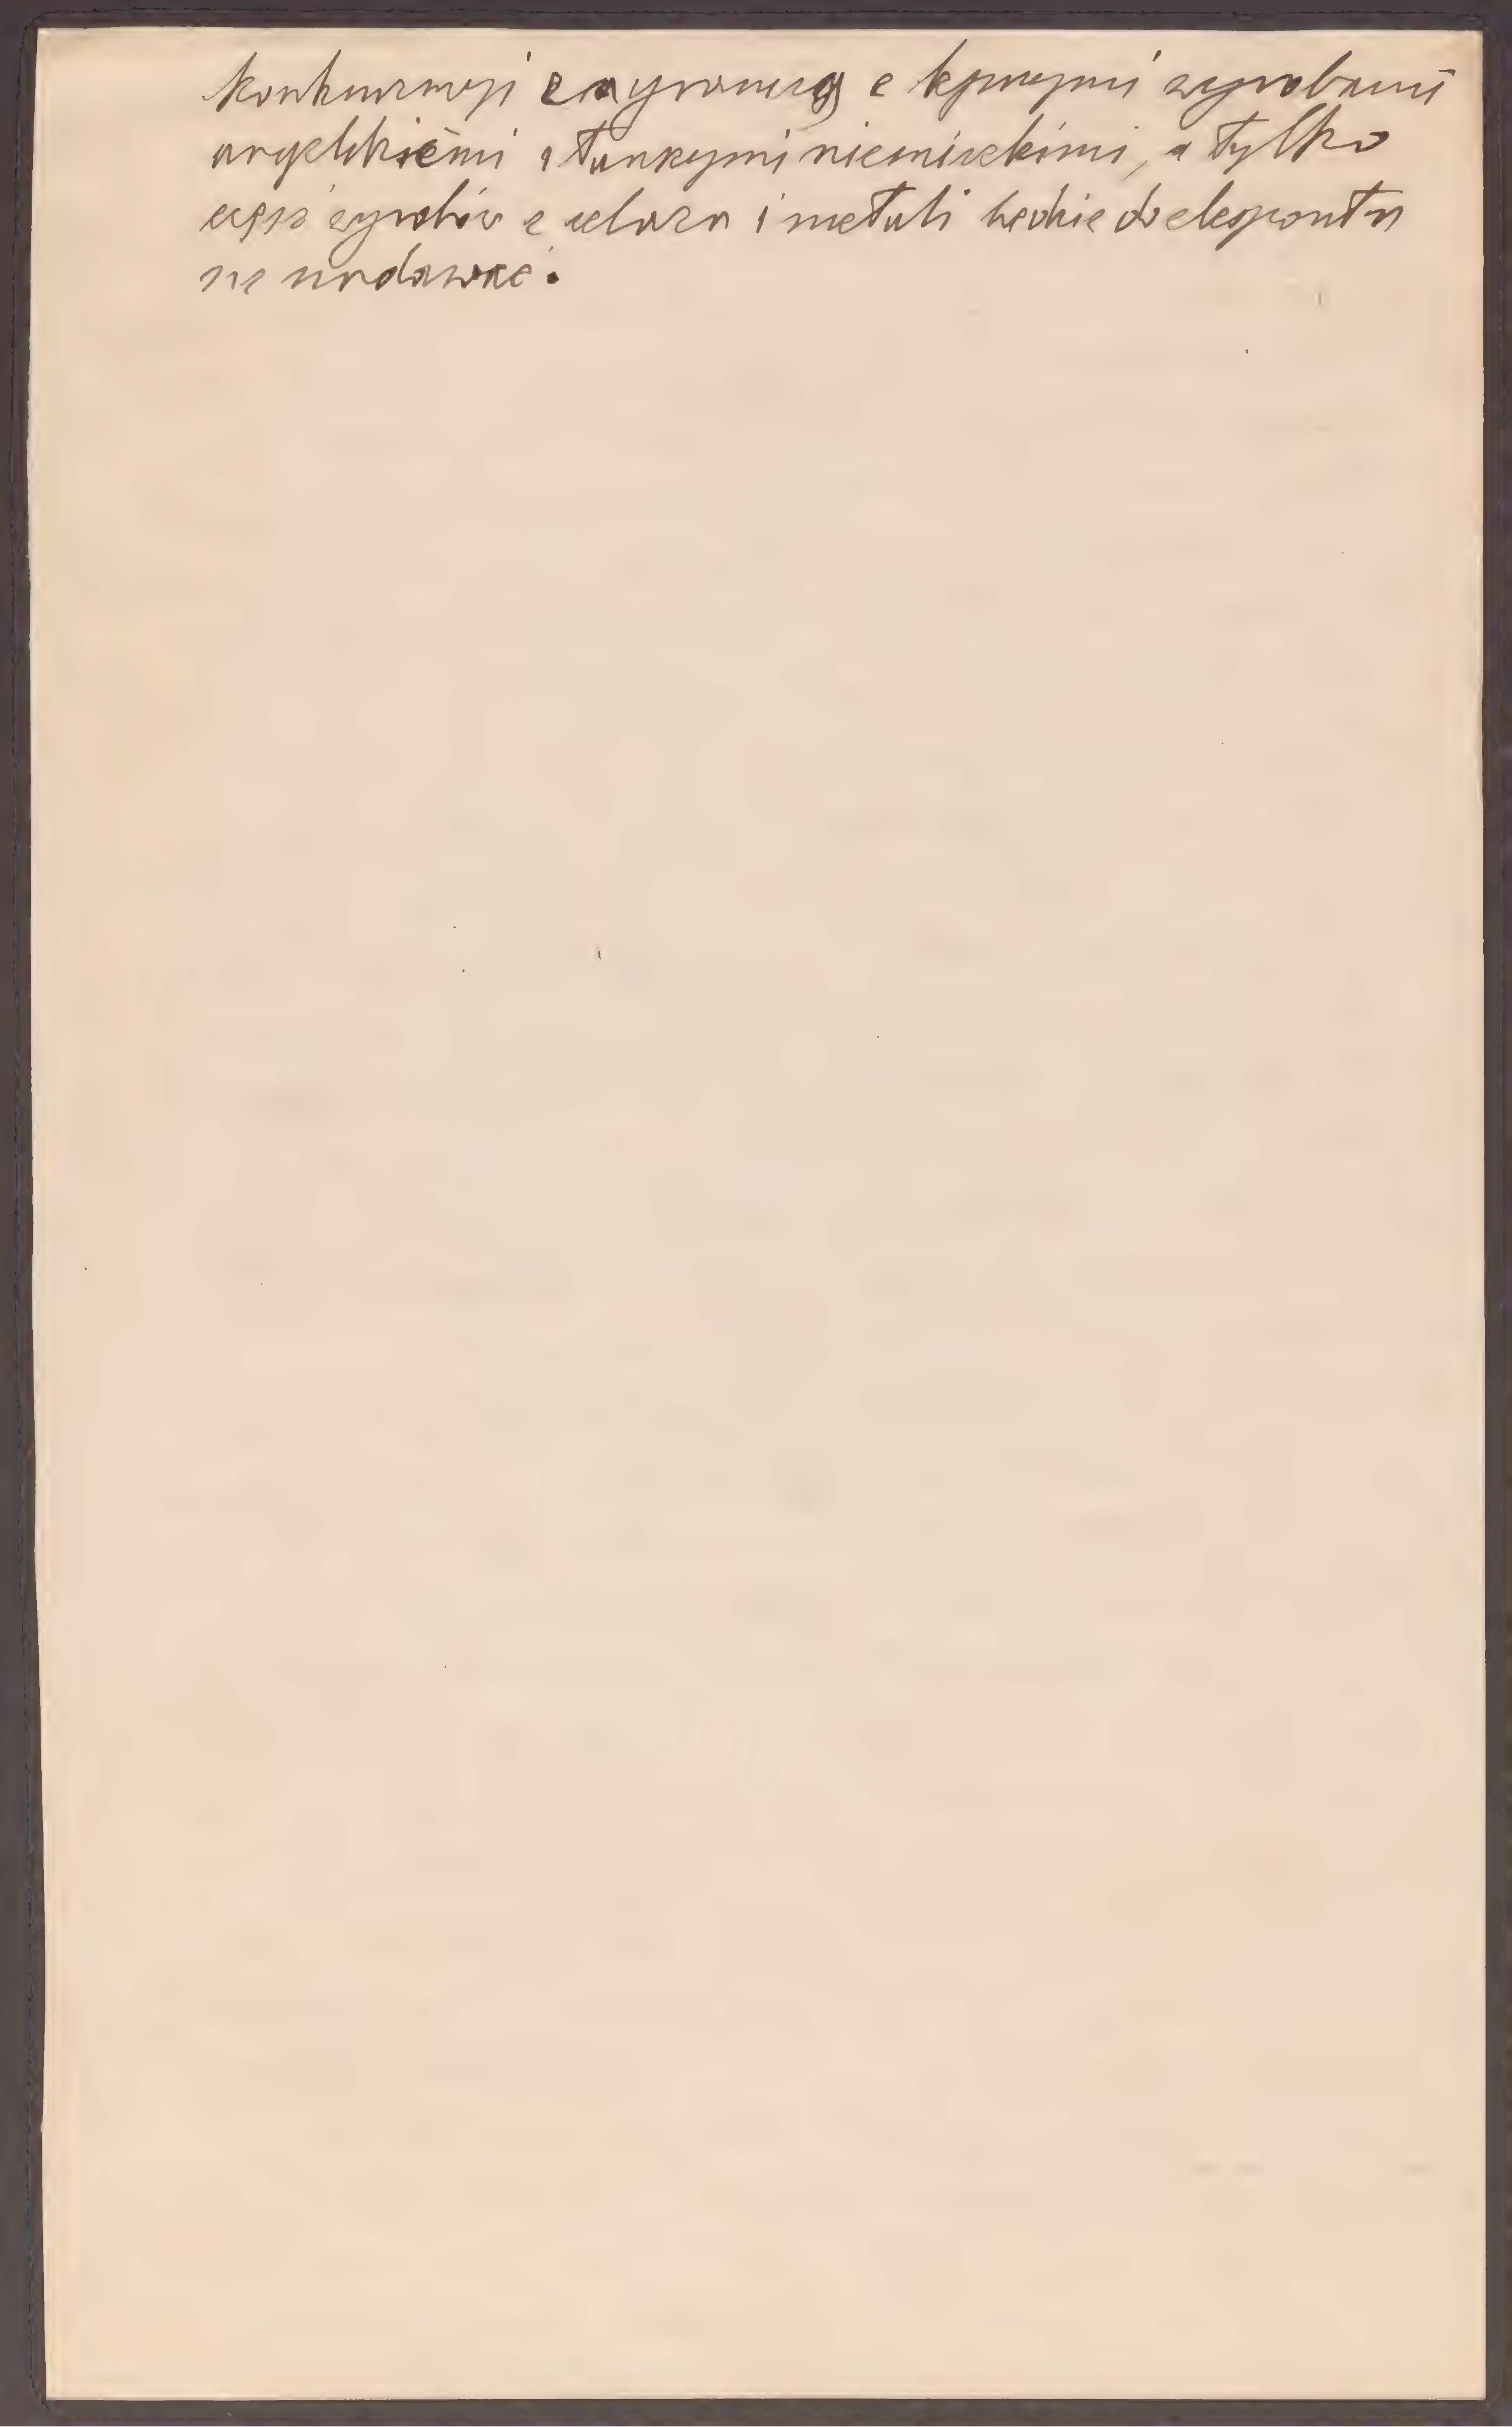 konkurencji zagranicą z lepszymi wyrobami
angielskiemi i tańszymi niemieckimi, a tylko
część wyrobów z żelaza i metali będzie do eksportu
się nadawać.